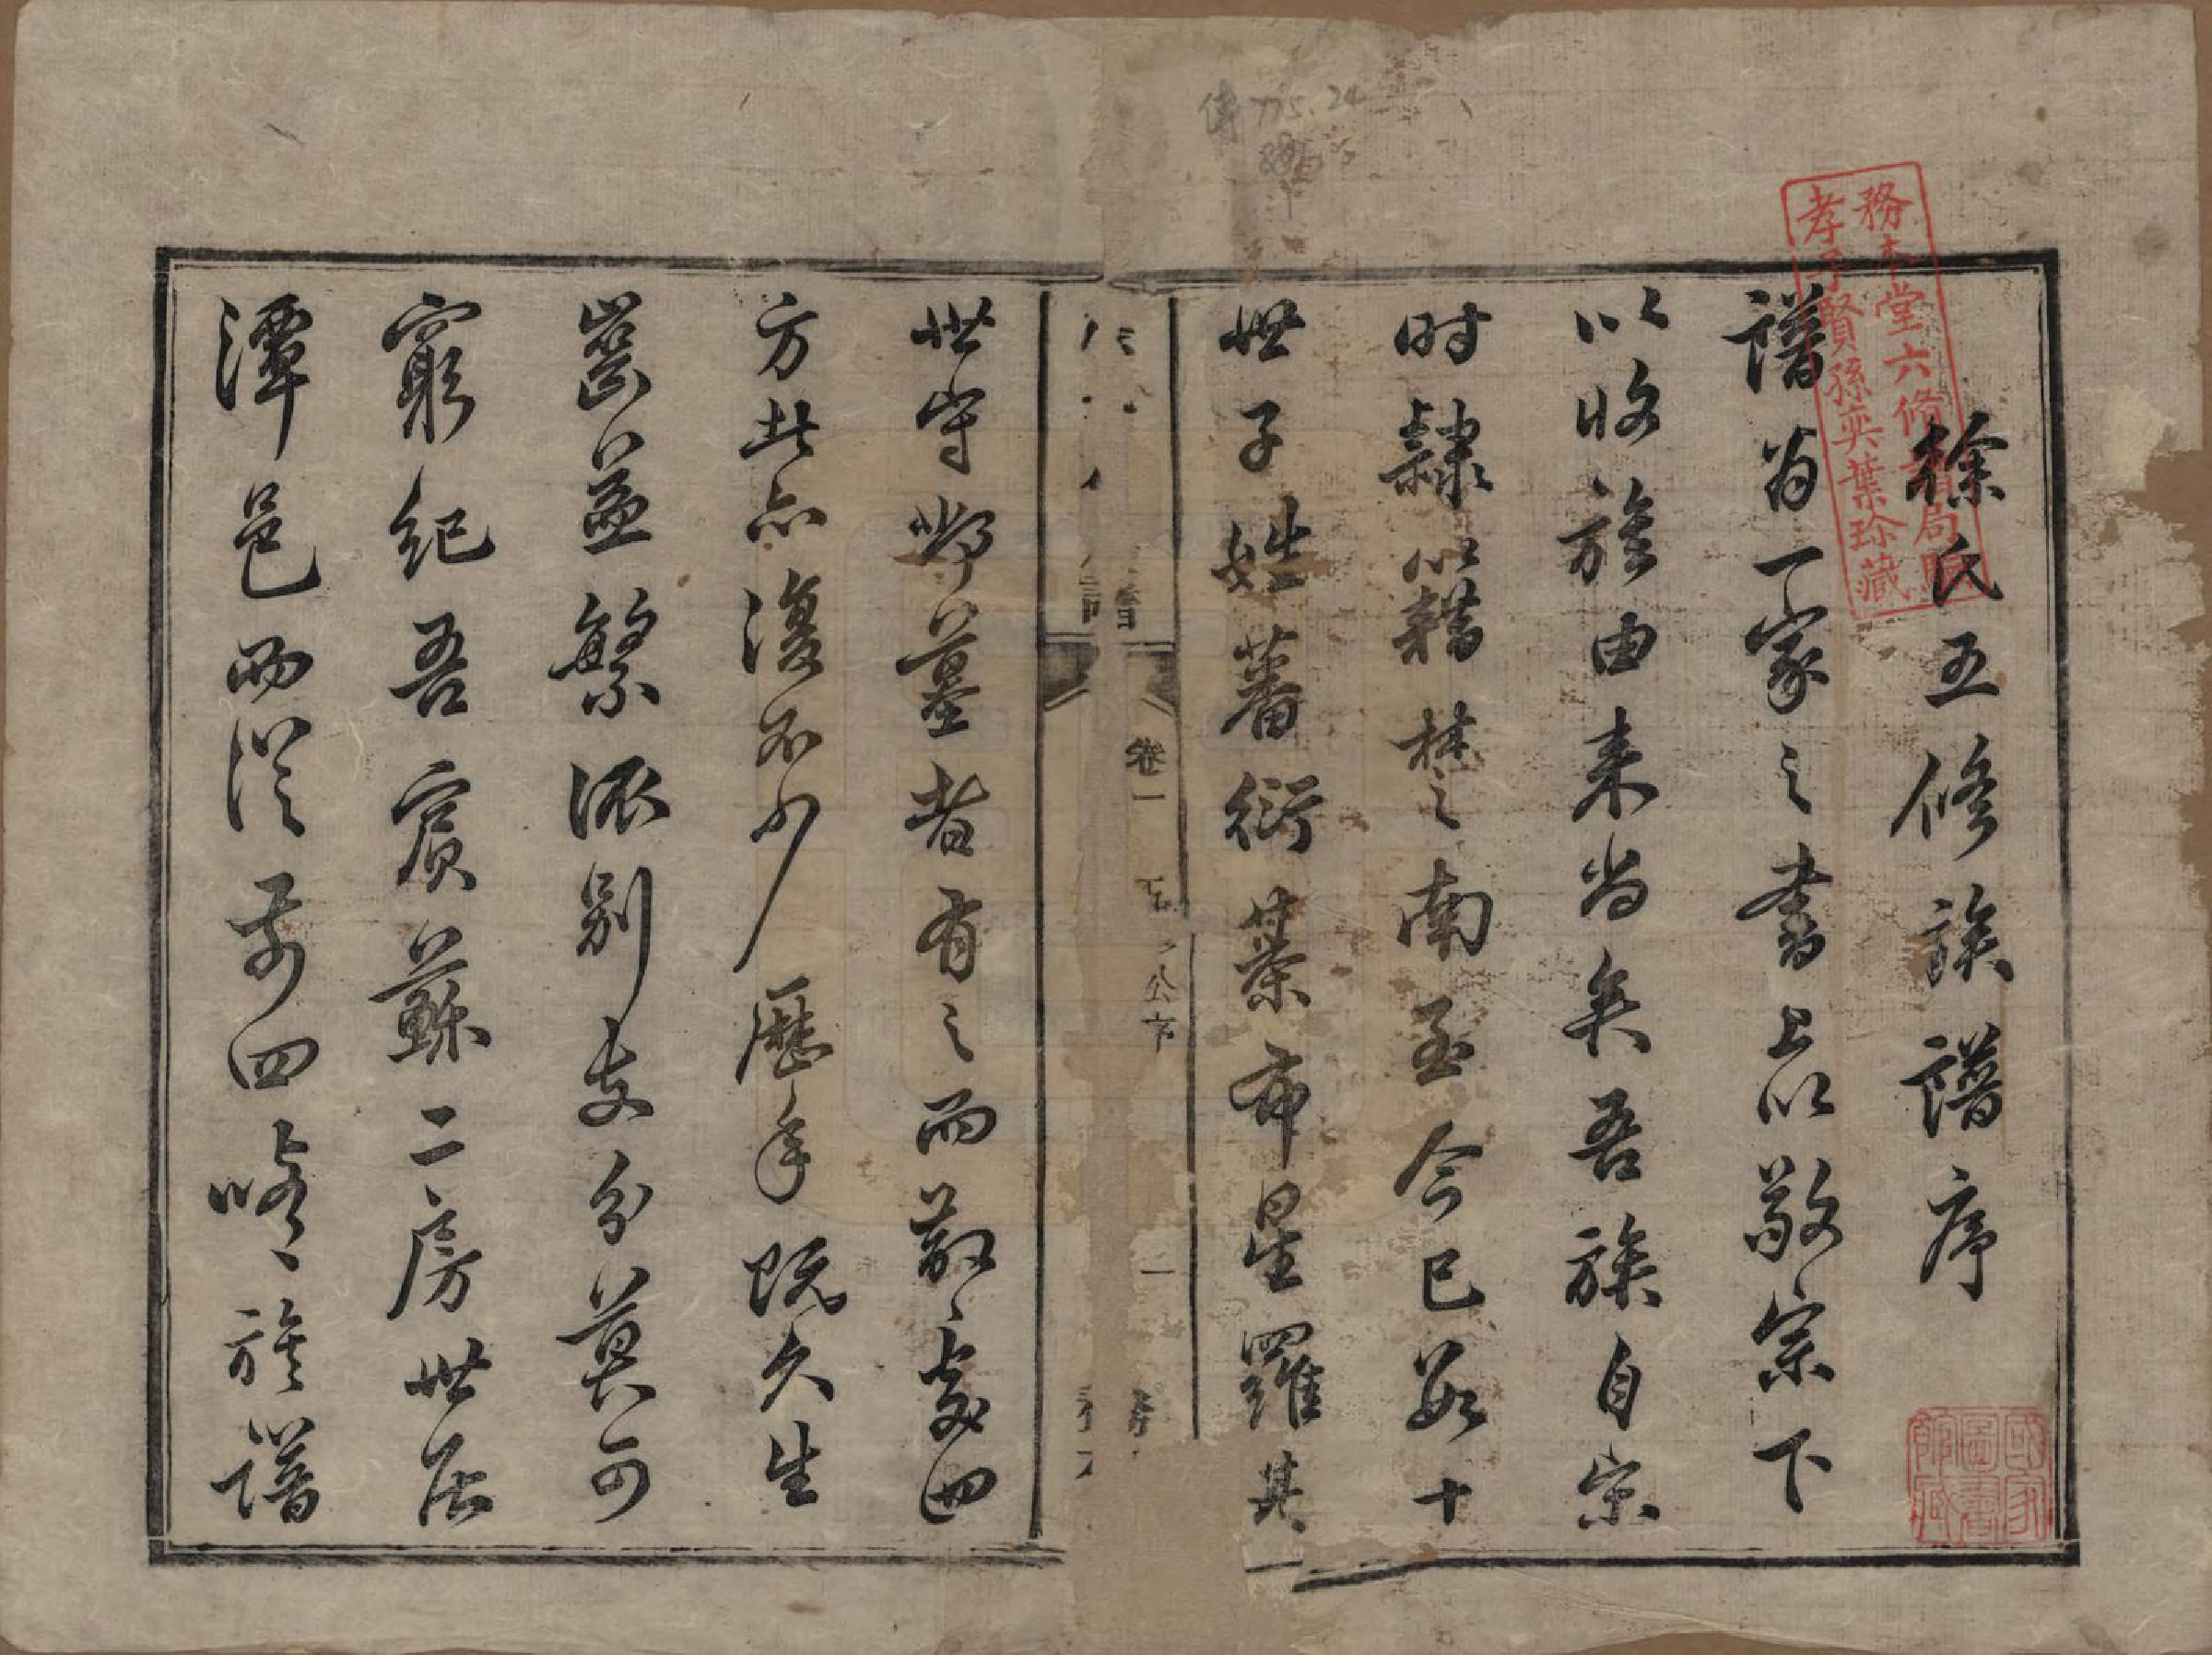 徐氏五修族譜序
譜為一家之書上以敬宗下
以收族由来尚矣吾族自宗
时隸籍楚之南至今已數十
世子姓蕃衍葉布星羅其
世守邱墓者有之而散處四
方者亦復不少歷年既久生
齒益繁派別支分莫可
窮紀吾賓蘇二房世居
潭邑西從前四修族譜
卷一
務本堂六修譜局
孝子賢孫奕葉珍藏
國家圖書館藏
775.24